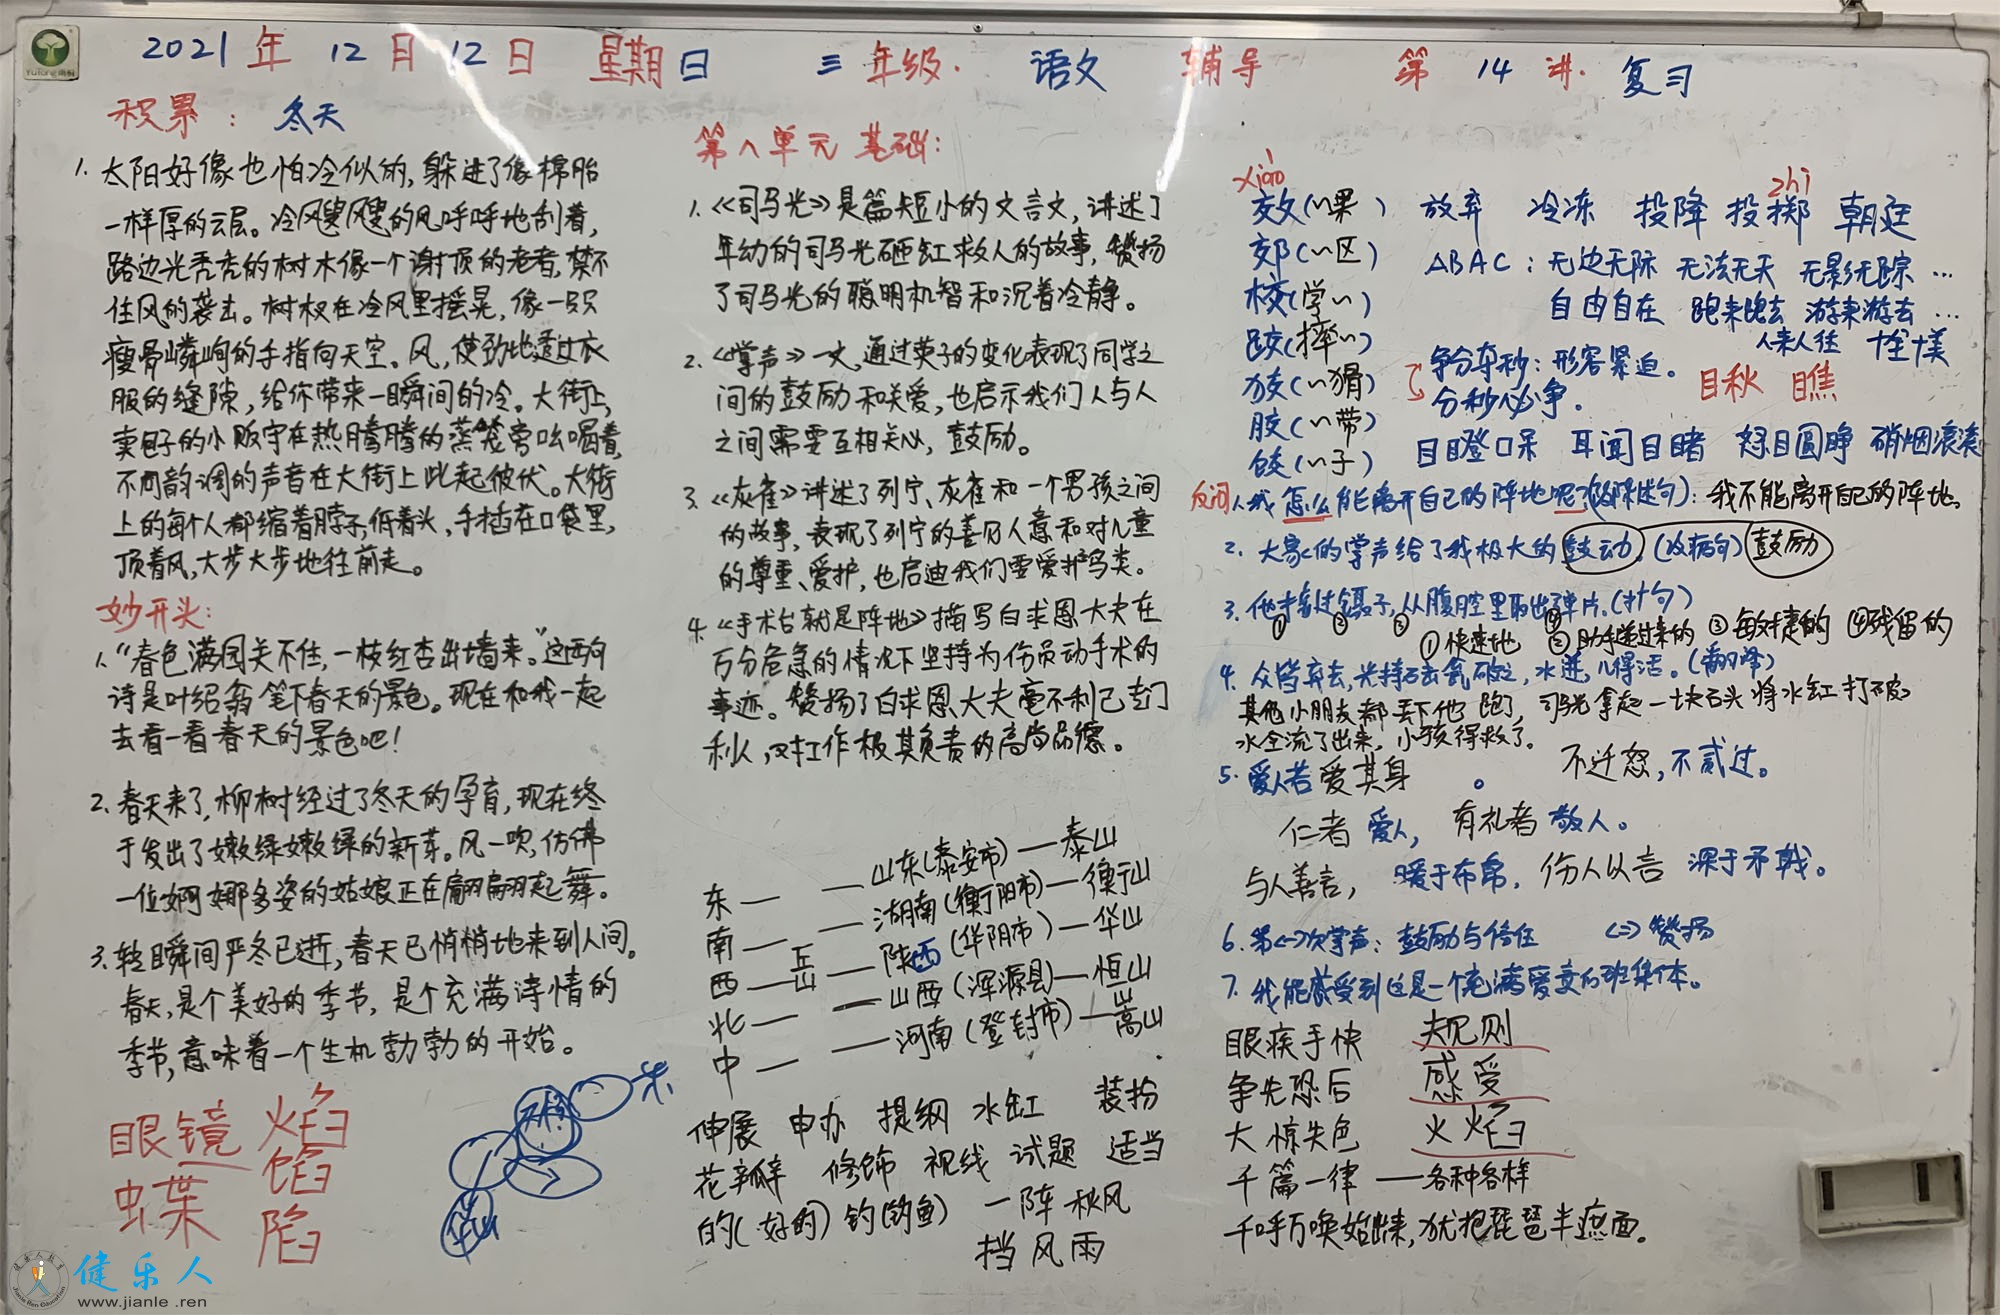 2021年12月12日 星期日 三年级. 语文 辅导 第14讲. 复习
积累：冬天
1. 太阳好像也怕冷似的，躲进了像棉胎
一样厚的云层。冷飕飕的风呼呼地刮着，
路边光秃秃的树木像一个谢顶的老者，禁不
住风的袭击。树杈在冷风里摇晃，像一只
瘦骨嶙峋的手指向天空。风，使劲地透过衣
服的缝隙，给你带来一瞬间的冷。大街上，
卖包子的小贩守在热腾腾的蒸笼旁吆喝着，
不同韵调的声音在大街上此起彼伏。大街
上的每个人都缩着脖子，低着头，手插在口袋里，
顶着风，大步大步地往前走。
妙开头：
1. “春色满园关不住，一枝红杏出墙来。”这两句
诗是叶绍翁笔下春天的景色。现在和我一起
去看一看春天的景色吧！
2. 春天来了，柳树经过了冬天的孕育，现在终
于发出了嫩绿嫩绿的新芽。风一吹，仿佛
一位婀娜多姿的姑娘正在翩翩起舞。
3. 转瞬间严冬已逝，春天已悄悄地来到人间。
春天，是个美好的季节，是个充满诗情的
季节，意味着一个生机勃勃的开始。
眼镜 焰
蝶 馅
陷
第八单元 基础：
1. 《司马光》是篇短小的文言文，讲述了
年幼的司马光砸缸救人的故事，赞扬
了司马光的聪明机智和沉着冷静。
2. 《掌声》一文，通过英子的变化表现了同学之
间的鼓励和关爱，也启示我们人与人
之间需要互相关心，鼓励。
3. 《灰雀》讲述了列宁、灰雀和一个男孩之间
的故事，表现了列宁的善解人意和对儿童
的尊重、爱护，也启迪我们要爱护鸟类。
4. 《手术台就是阵地》描写白求恩大夫在
万分危急的情况下坚持为伤员动手术的
事迹。赞扬了白求恩大夫毫不利己专门
利人，对工作极其负责的高尚品德。
东— —山东(泰安市)—泰山
南— —湖南(衡阳市)—衡山
西— 岳 —陕西(华阴市)—华山
北— —山西(浑源县)—恒山
中— —河南(登封市)—嵩山
伸展 申办 提纲 水缸 装扮
花瓣 修饰 视线 试题 适当
的(好的) 钓(钓鱼) 一阵秋风
挡风雨
xiào
效(～果) 放弃 冷冻 投降 投掷 朝廷
zhì
郊(～区) ABAC：无边无际 无法无天 无影无踪…
校(学～) 自由自在 跑来跑去 游来游去…
跤(摔～) 人来人往 十全十美
狡(～猾) 争分夺秒：形容紧迫。
分秒必争。
胶(～带)
饺(～子) 目瞪口呆 耳闻目睹 怒目圆睁 硝烟滚滚
反问 1. 我怎么能离开自己的阵地呢？(改陈述句)：我不能离开自己的阵地。
2. 大家的掌声给了我极大的鼓动。(改病句) 鼓励
3. 他接过镊子，从腹腔里取出弹片。(扩句)
① ② ③ ④
①快速地 ②助手递过来的 ③敏捷的 ④残留的
4. 众皆弃去，光持石击瓮破之，水迸，儿得活。(翻译)
其他小朋友都丢下他跑了，司马光拿起一块石头将水缸打破，
水全流了出来，小孩得救了。
5. 爱人若爱其身。 不迁怒，不贰过。
仁者爱人，有礼者敬人。
与人善言，暖于布帛，伤人以言 深于矛戟。
6. 第(一)次掌声：鼓励与信任 (二)赞扬
7. 我能感受到这是一个充满爱意的班集体。
眼疾手快 规则
争先恐后 感受
大惊失色 火焰
千篇一律——各种各样
千呼万唤始出来，犹抱琵琶半遮面。
健乐人
www.jianle.ren